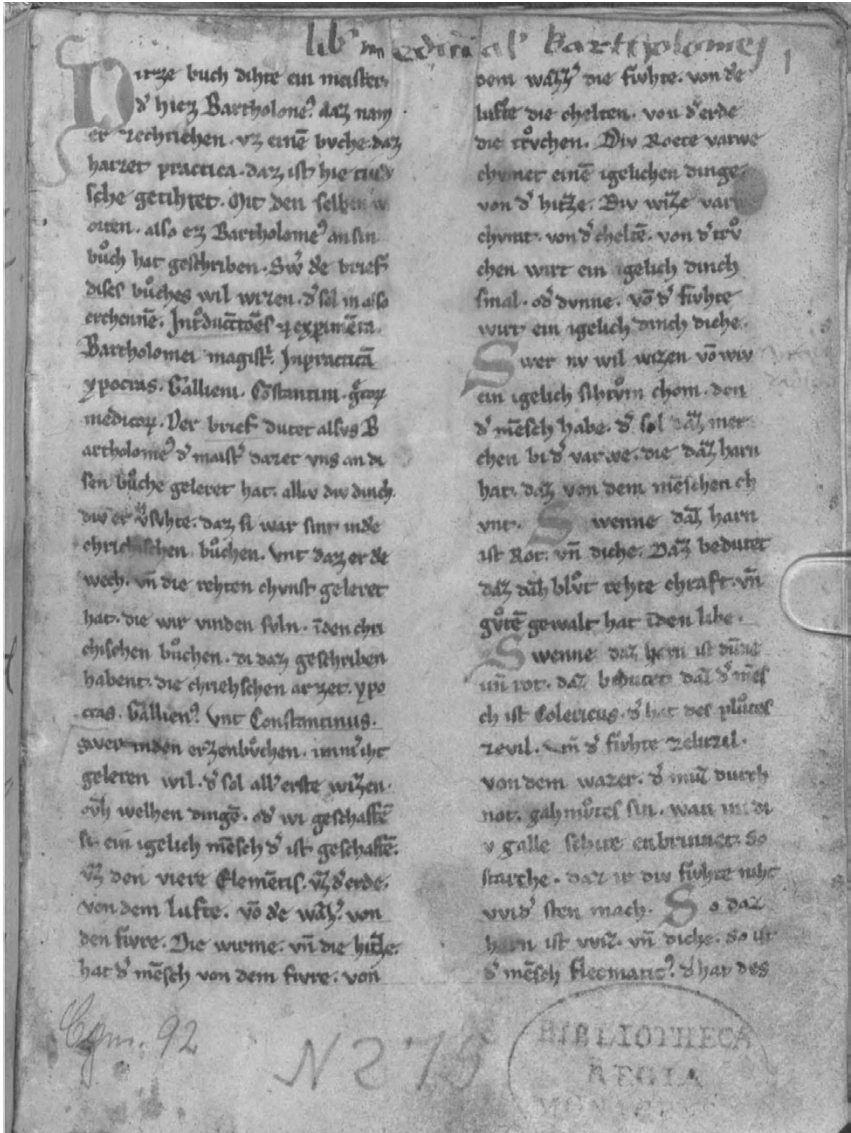 lib' medicinal' Bartholomej
1
Ditze buch dihte ein meister
d' hiez Bartholome9 daz nam
er zechriehen. vz einē bvche. daz
haizet practica. daz ist hie tivt
sche getihtet. Mit den selben w
orten. also ez Bartholome9 an sin
bůch hat geschriben. Sw' de brief
dises bůches wil wizen. d' sol in also
erchennē. Introductōes ⁊ expimēta.
Bartholomei magistʼ. Inpracticā
ypocras. Gallieni. Cōstantini. gͤcoꝝ
medicoꝝ. Der brief dutet alsvs B
artholome9 d' maist' dazet vns an di
sen bůche geleret hat. alliv div dinch.
div er v'svhte. daz si war sint in de
chrichischen bůchen. vnt daz er de
wech. vn̄ die rehten chvnst geleret
hat. die wir vinden svln. īden chri
chischen bůchen. di daz geschriben
habent. die chriehschen arzet. ypo
cras. Gallien9 vnt Constantinus.
swer in den erzenbůchen. imm' iht
geleren wil. d' sol all' erste wizen.
vzh welhen dingē. od' wi geschaffē
si. ein igelich mēsch d' ist geschaffē.
vz den viere Elemētis. vz d' erde.
von dem lufte. vō de waz'. von
den fivre. Die wirme. vn̄ die hitze.
hat d' mēsch von dem fivre. von
dem waz' die fivhte. von de
lufte die chelten. von d' erde
die trvchen. Div Roete varwe
chvmet einē igelichen dinge.
von d' hitze. Div wize varw
chvmt. von d' cheltē. von d' trů
chen wirt ein igelich dinch
smal. od' dvnne. vō d' fivhte
wirt ein igelich dinch diche.
Swer nv wil wizen vō wiv
ein igelich sihtvm chom. den
d' mēsch habe. d' sol daz mer
chen bi d' varwe. die daz harn
hat. daz von dem mēschen ch
vmt. Swenne daz harn
ist Rot. vn̄ diche. Daz bedutet
daz daz blůt rehte chraft. vn̄
gůtē gewalt hat īden libe.
Swenne daz harn ist dūne
un̄ rot. daz bedutet daz d' mēs
ch ist Colericus. d' hat des plůtes
zevil. vn̄ d' fivhte zelvzel.
von dem wazer. d' můz durch
not. gahmůtes sin. wan im di
v galle schire enbrinnet. So
starche. daz ir div fivhte niht
wid' sten mach. So daz
harn ist wiz. vn̄ diche. so ist
d' mēsch flecmatic9. d' hat des
Cgm. 92
N 275
BIBLIOTHECA
REGIA
MONACENSIS